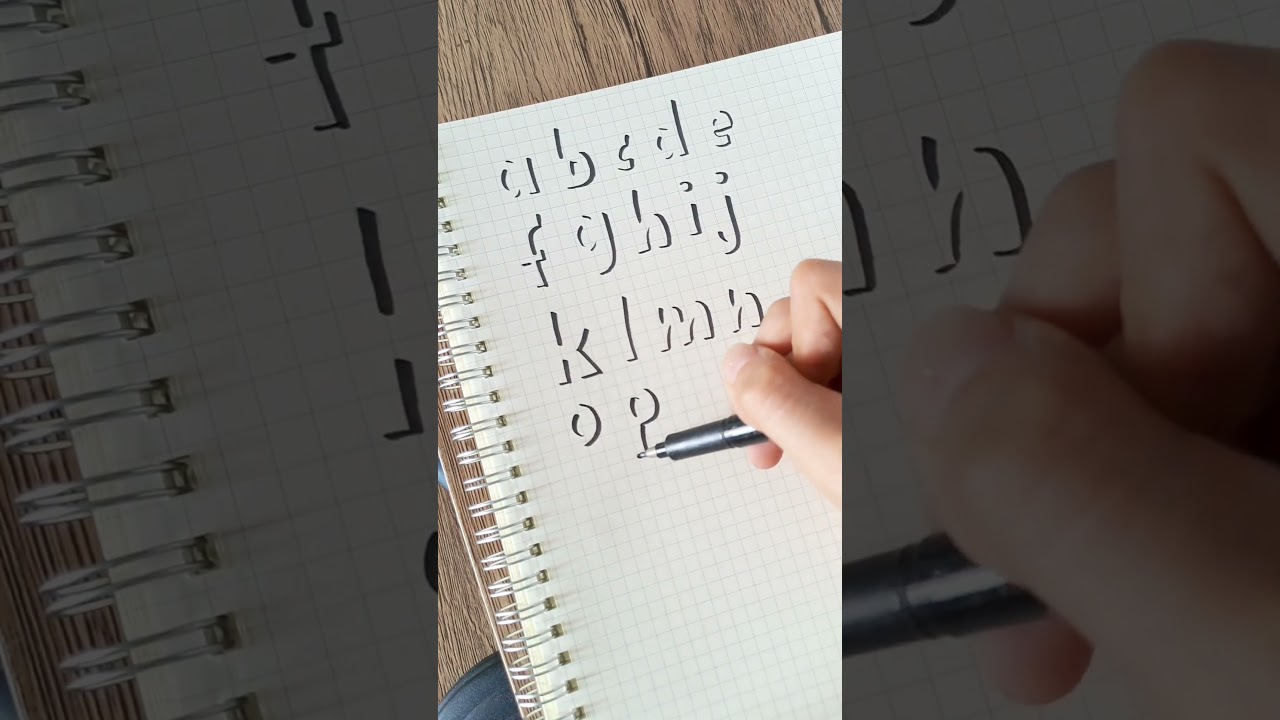 a b c d e
f g h i j
k l m n
o p